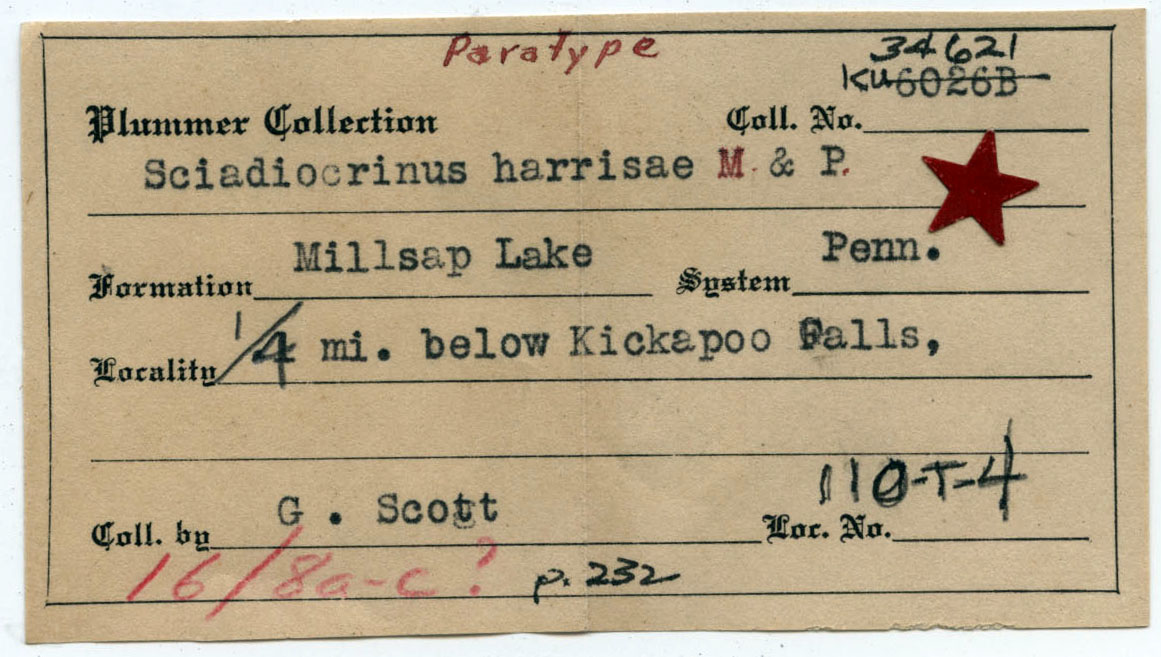 Paratype
34621
KU 6026B
Plummer Collection Coll. No.
Sciadiocrinus harrisae M. & P.
Formation Millsap Lake System Penn.
Locality 1/4 mi. below Kickapoo Falls,
Coll. by G. Scott Loc. No. 110-T-4
16/8a-c? p. 232